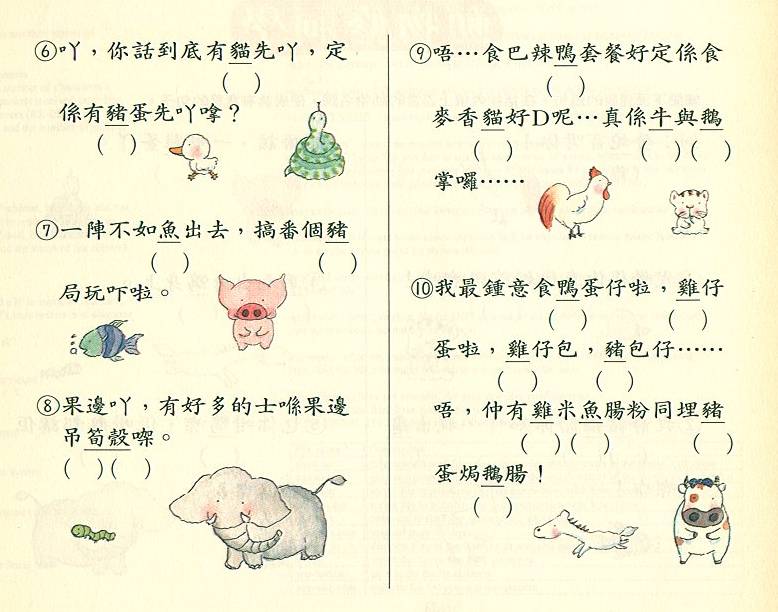 ⑥吖，你話到底有貓先吖，定
( )
係有豬蛋先吖嗱？
( )
⑦一陣不如魚出去，搞番個豬
( ) ( )
局玩吓啦。
⑧果邊吖，有好多的士喺果邊
吊筍殼㗎。
( )( )
⑨唔…食巴辣鴨套餐好定係食
( )
麥香貓好D呢…真係牛與鵝
( ) ( )( )
掌囉……
⑩我最鍾意食鴨蛋仔啦，雞仔
( ) ( )
蛋啦，雞仔包，豬包仔……
( ) ( )
唔，仲有雞米魚腸粉同埋豬
( )( ) ( )
蛋焗鵝腸！
( )